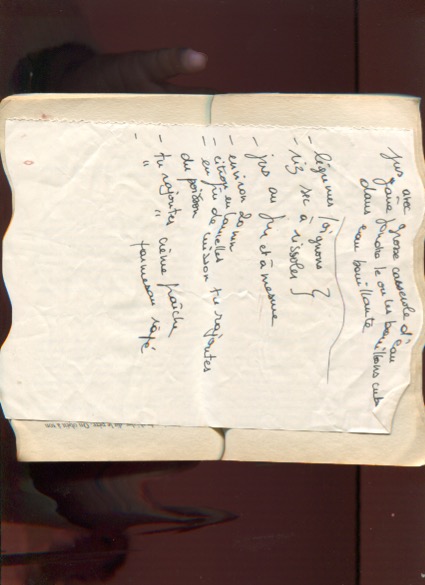 jus avec grosse casserole d'eau
faire fondre le ou les bouillons cube
dans eau bouillante
- légumes / oignons }
- riz sec à rissoler }
- jus au fur et à mesure
- environ 20 mn
- citron en lamelles
- en fin de cuisson tu rajoutes
du poisson
- tu rajoutes crème fraîche
- " " parmesan râpé